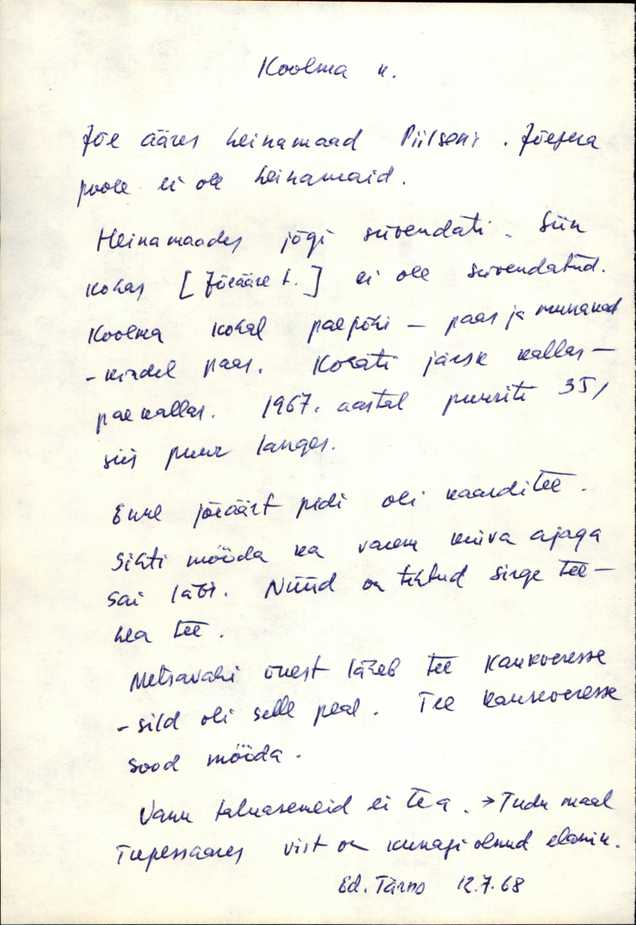 Koolma k.
Jõe ääres heinamaad Piilseni. Jõepera
poole ei ole heinamaid.
Heinamaades jõgi süvendati. Siin
kohas [Jõeääre t.] ei ole süvendatud.
Koolma kohal paepõhi – paas ja munakad
– kindel paas. Kohati järsk kallas –
paekallas. 1967. aastal puuriti 35,
siis puur langes.
Enne jõeäärt pidi oli kaarditee.
Sihti mööda ka varem kuiva ajaga
sai läbi. Nüüd on tehtud sirge tee –
hea tee.
Metsavahi õuest läheb tee
– sild oli selle peal. Tee
sood mööda.
Vanu taluasemeid ei tea. → Tudu maal
vist on kunagi olnud elanik.
Ed. Tärno 12.7.68